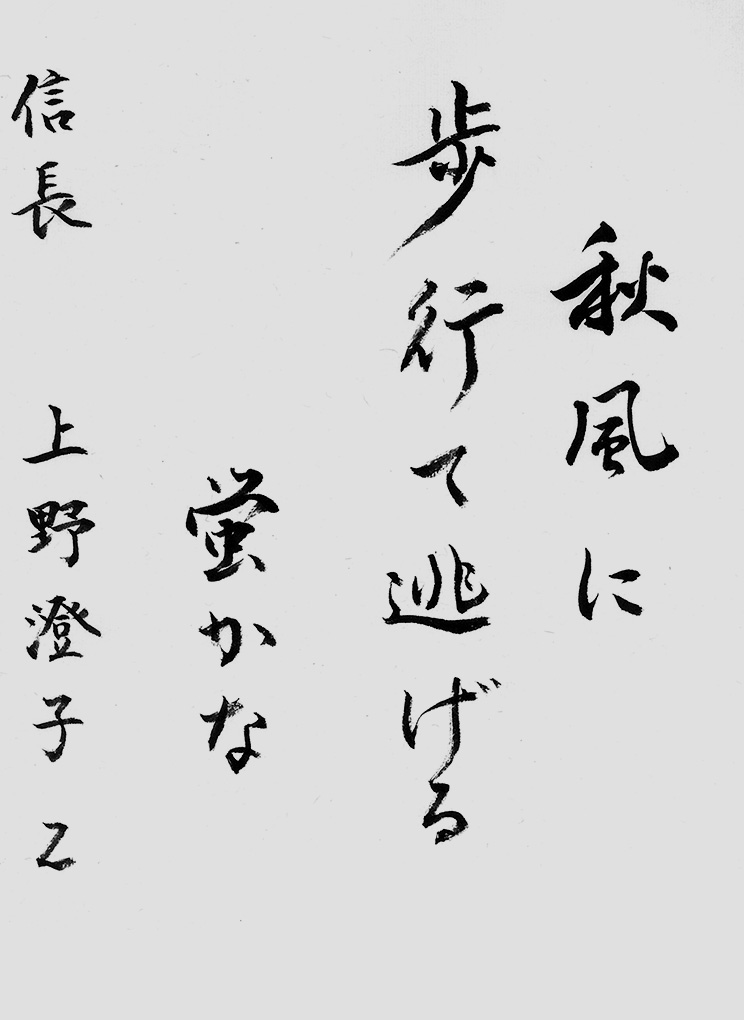 秋風に
歩行て逃げる
蛍かな
信長 上野澄子 乙